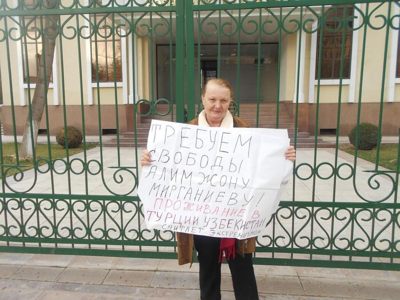 ТРЕБУЕМ
СВОБОДЫ
АЛИМЖОНУ
МИРГАНИЕВУ!
ПРОЖИВАНИЕ В
ТУРЦИИ УЗБЕКИСТАН
СЧИТАЕТ